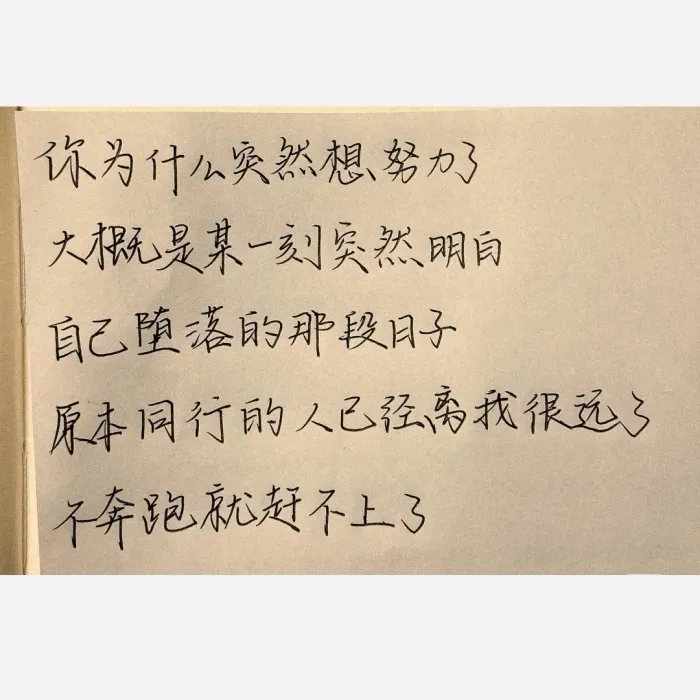 你为什么突然想努力了
大概是某一刻突然明白
自己堕落的那段日子
原本同行的人已经离我很远了
不奔跑就赶不上了